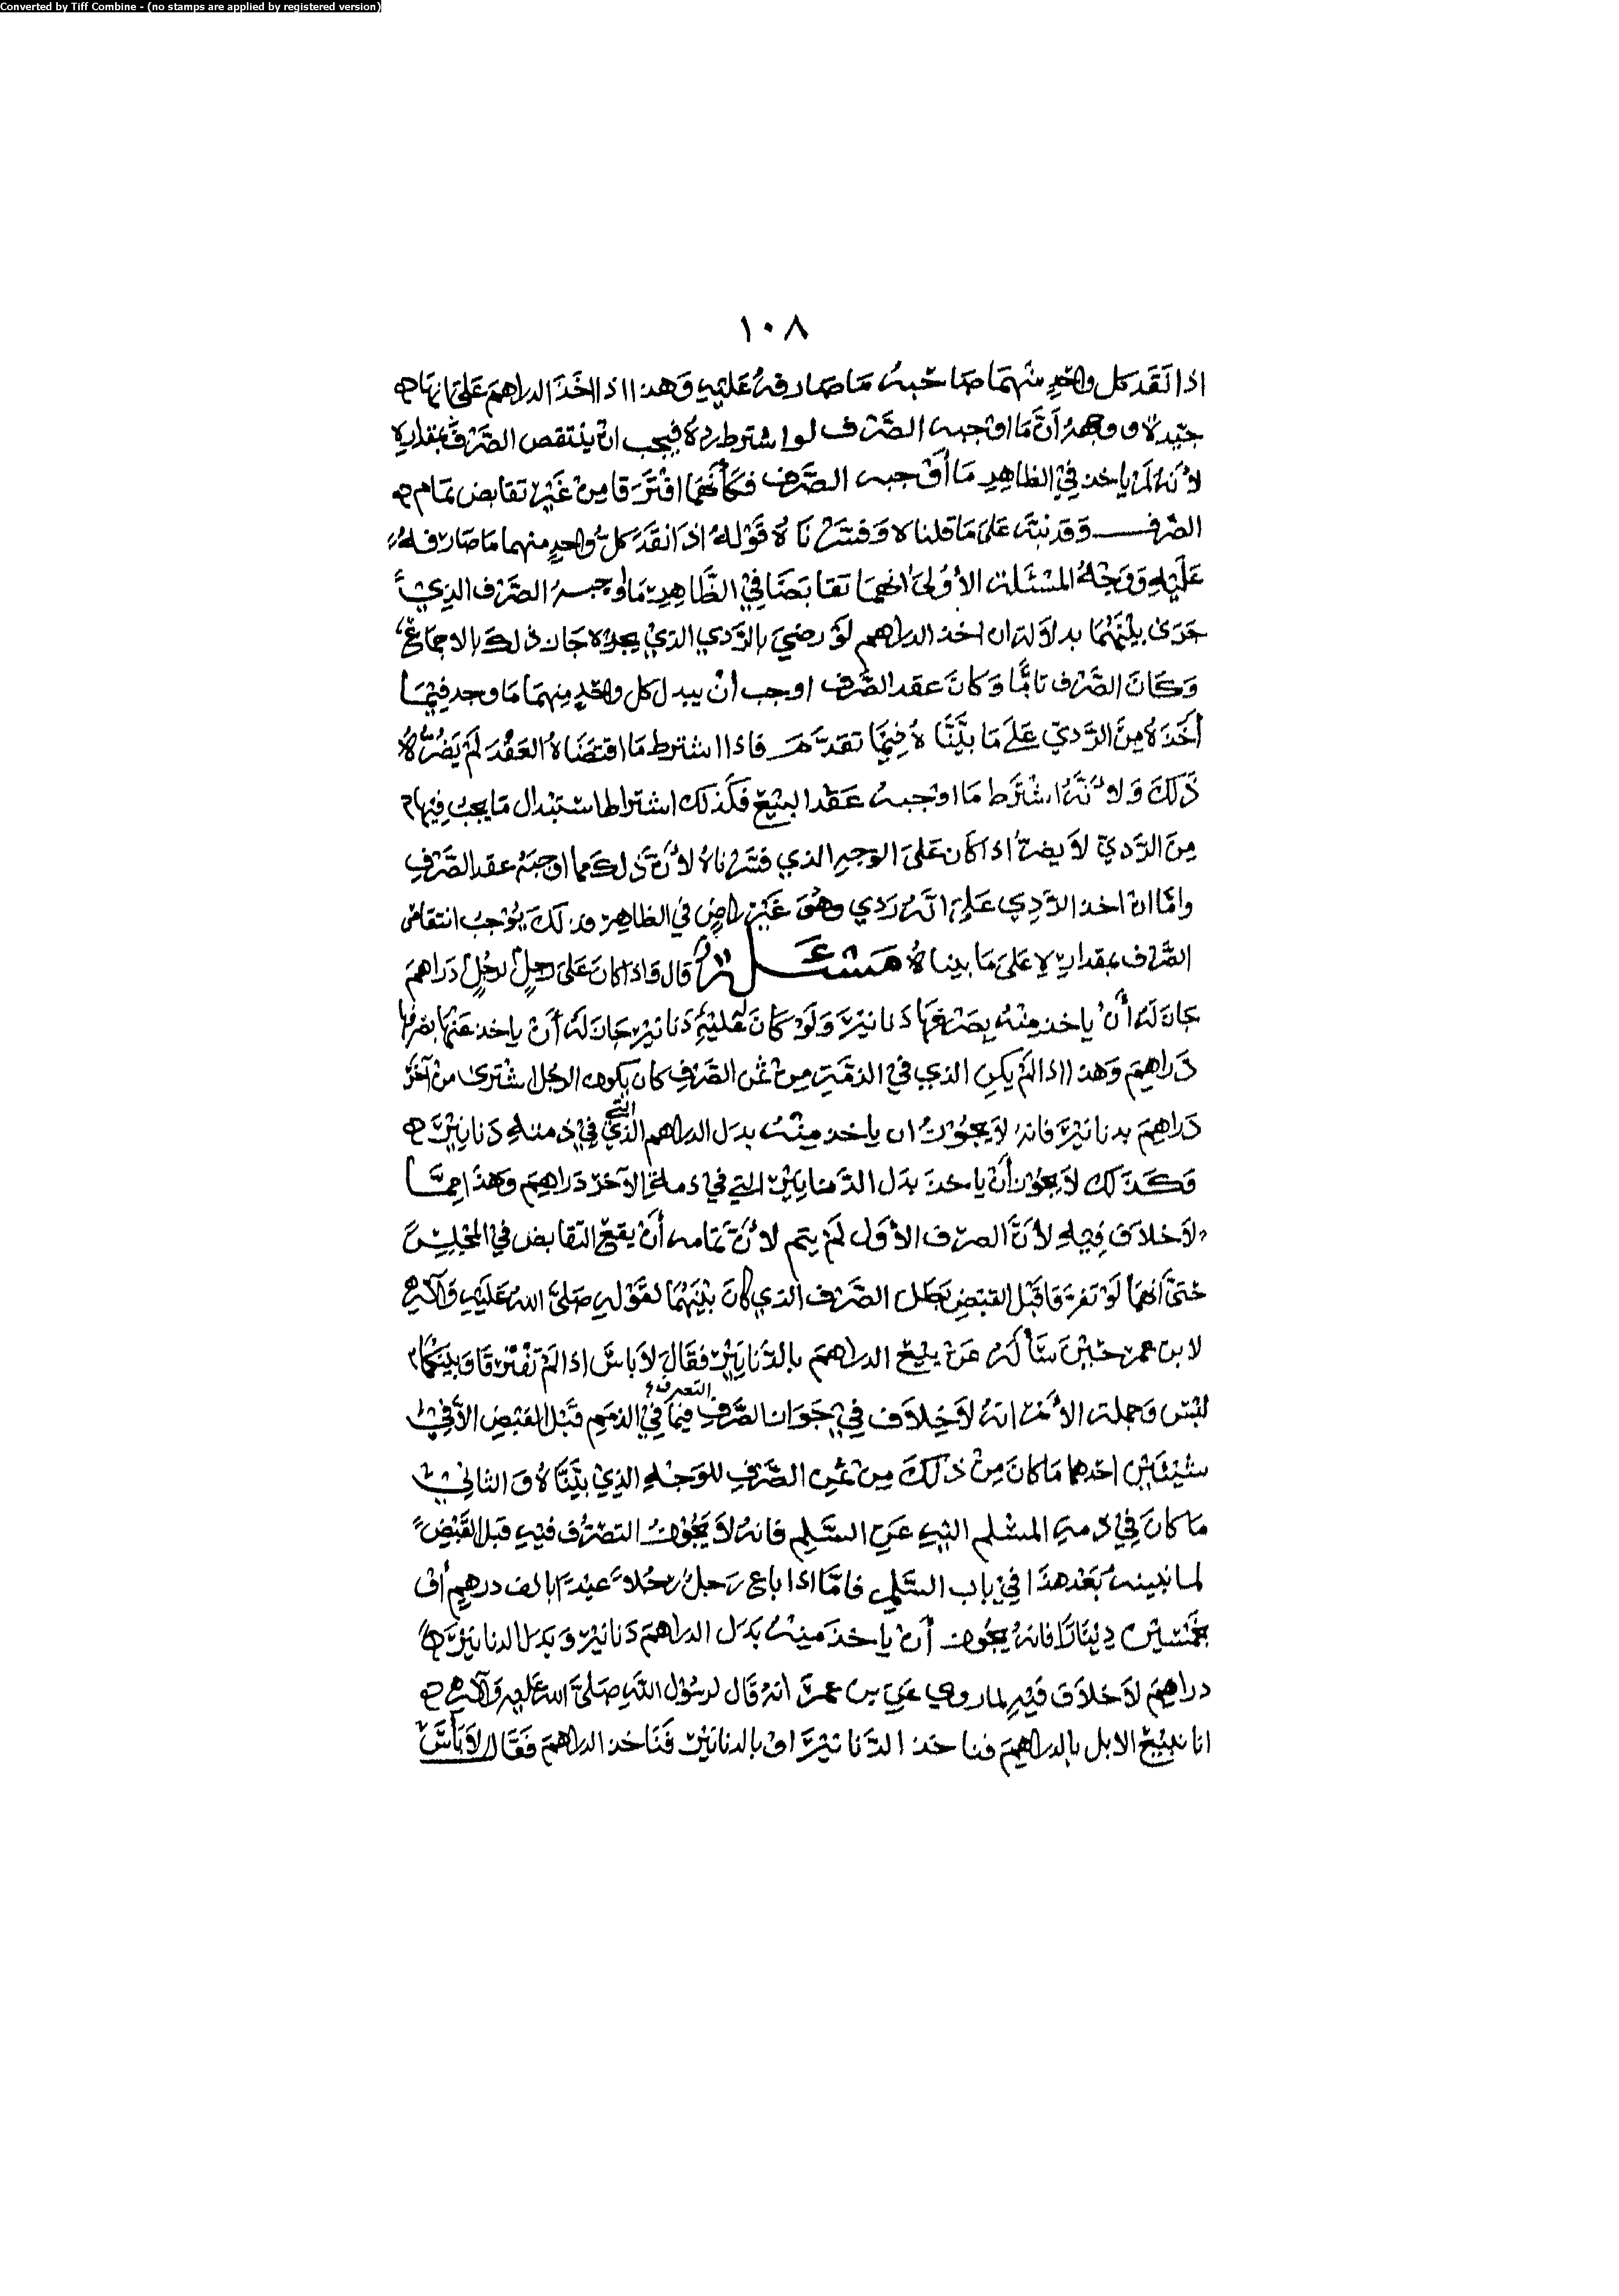 Converted by Tiff Combine - (no stamps are applied by registered version)
١٠٨
اذا نَقَد كل واحِدٍ مِنهمَا صَاحبهُ مَا صَارفهُ عَليهِ وَهذا اذا اخَذَ الدراهمَ عَلَى انهَا
جيّدة ووجهه أنَّ مَا اوْجبه الصَّرْف لو اشترط رده فيجب انْ ينتقص الصَّرْف بمقداره
لأنه لم ياخذ في الظاهِرِ مَا أوْجبه الصَّرْف فكأنهُمَا افْتَرَقا مِنْ غَيْر تقابض تمام
الصّرف وَقد نبّه عَلى مَا قلناه وَفسّرْنَاهُ قَوْلهُ اذا نقدَ كلُّ واحدٍ منهما مَا صَارفهُ
عَلَيْهِ وَوَجْهُ المسْئَلة الأوُلىَ انهمَا تقابَضَا في الظَّاهِرِ مَا أوجبهُ الصَّرْف الذِيْ
جَرَى بيْنَهُمَا بدلالة ان اخذ الدراهم لَوْ رضيَ بالرَّدي الذيْ يجده جَاز ذلك بالاجماع
وَكَانَ الصَّرْف تامًّا وَكانَ عقد الصَّرْف اوجب انْ يبدل كل واحدٍ مِنهمَا مَا وجد فِيْمَا
أخَذهُ مِنَ الرَّديّ عَلَى مَا بيَّنَّاهُ فِيْمَا تقدَّمَ فاذا اشترط مَا اقتضَاهُ العَقْدَ لَمْ يَضُرّهُ
ذَلكَ وَلأنَّهُ اشْتَرَط مَا اوْجبهُ عَقْد البيْعِ فكَذلك اشتراط استبْدال مَا يجبُ فِيهَا
مِنَ الرَّديّ لاَ يضرّ اذا كَان عَلىَ الوَجهِ الذي فسَّرْناهُ لأنَّ ذَلكَ مما اوْجبَهُ عقد الصَّرْفِ
وامّا ان اخذ الرَّدِي عَلى انَّهُ رَدي وهُوَ غَيْر رَاضٍ في الظاهِرِ وذلكَ يُوْجبُ انتقاض
الصَّرْف بمقدارهِ عَلىَ مَا بيناهُ مَسْئَلة قال وَاذا كانَ عَلىَ رجلٍ لرجُلٍ دَراهمَ
جَازَ لهُ أنْ ياخذ مِنْهُ بِصَرْفهَا دَنانيْرَ وَلَوْ كَانَ لهُ عَليْهِ دَنانيْر جَازَ لَهُ أنْ ياخذ عَنْهَا بصَرْفها
دَراهِمَ وَهذا اذا لَمْ يكن الذي في الذمّةِ مِنْ ثمَن الصَّرْفِ كان يَكون الرجُل اشترى منْ آخَر
دَراهِمَ بدنانيْرَ فانهُ لاَ يَجُوْزُ ان ياخذ مِنْهُ بدَل الدراهم الذي التي في ذمتهِ دَنانِيْرَ
وَكَذلك لاَ يَجُوْز أنْ ياخذَ بدَل الدَّنانِيْر التِي في ذمةِ الآخرْ دَراهِمَ وَهذَا مِمَّا
لاَ خلاَف فِيهِ لأنَّ الصرْف الأوَل لمْ يتم لأنَّ تمَامه أنْ يقعَ التقابض في المجْلِسْ
حَتىَّ أنهمَا لَوْ تفرّقَا قَبْل القبْضِ بَطل الصَّرْف الذي كانَ بيْنهُمَا لقَوْلهِ صَلىَّ اللهُ عَليهِ وَآلهِ
لابن عمر حِيْنَ سَأَلهُ عَنْ بيْعِ الدراهمَ بالدَّنانِيْر فقَالَ لاَ باسَ اذا لمْ تفْترقَا وَبيْنكُمَا
لبْس وَجملة الأمْر انهُ لاَ خِلاَف فِيْ جَوَاز الصَّرْفِ التصرف فيْمَا في الذممِ قبْل القبْضِ الاّ فِيْ
شيْئيْن احَدهما مَا كانَ مِنْ ذَلكَ مِنْ ثمَن الصَّرْف للوَجْهِ الذِيْ بيَّنَّاهُ وَ الثاني
مَا كانَ في ذمةِ المسْلم اليْهِ عَن السَّلم فانهُ لاَ يَجُوْزُ التصَرُّف فيْهِ قبَل القبْضِ
لما نبينهُ بَعْد هذَا في باب السَّلم فامّا اذا باع رَجلٌ رَجُلاً عبْدًا بالف درهمٍ أوْ
بخمْسيْن دِيْنَارًا فانهُ يَجُوز أنْ ياخذ مِنْهُ بدَل الدراهمَ دَنانيْر وَبدَل الدنانيْرَ
دراهِمَ لاَ خلاَفَ فيْهِ لما روي عن بن عمرَ انهُ قَال لرسُوْل اللهِ صَلىَّ الله عَليهِ وَآلهِ
انا نبيْعُ الابل بالدراهِمَ فناخذ الدَّنانيْرَ اوْ بالدنانيْر فَنَاخذ الدراهمَ فقَال لاَ بَأسَ